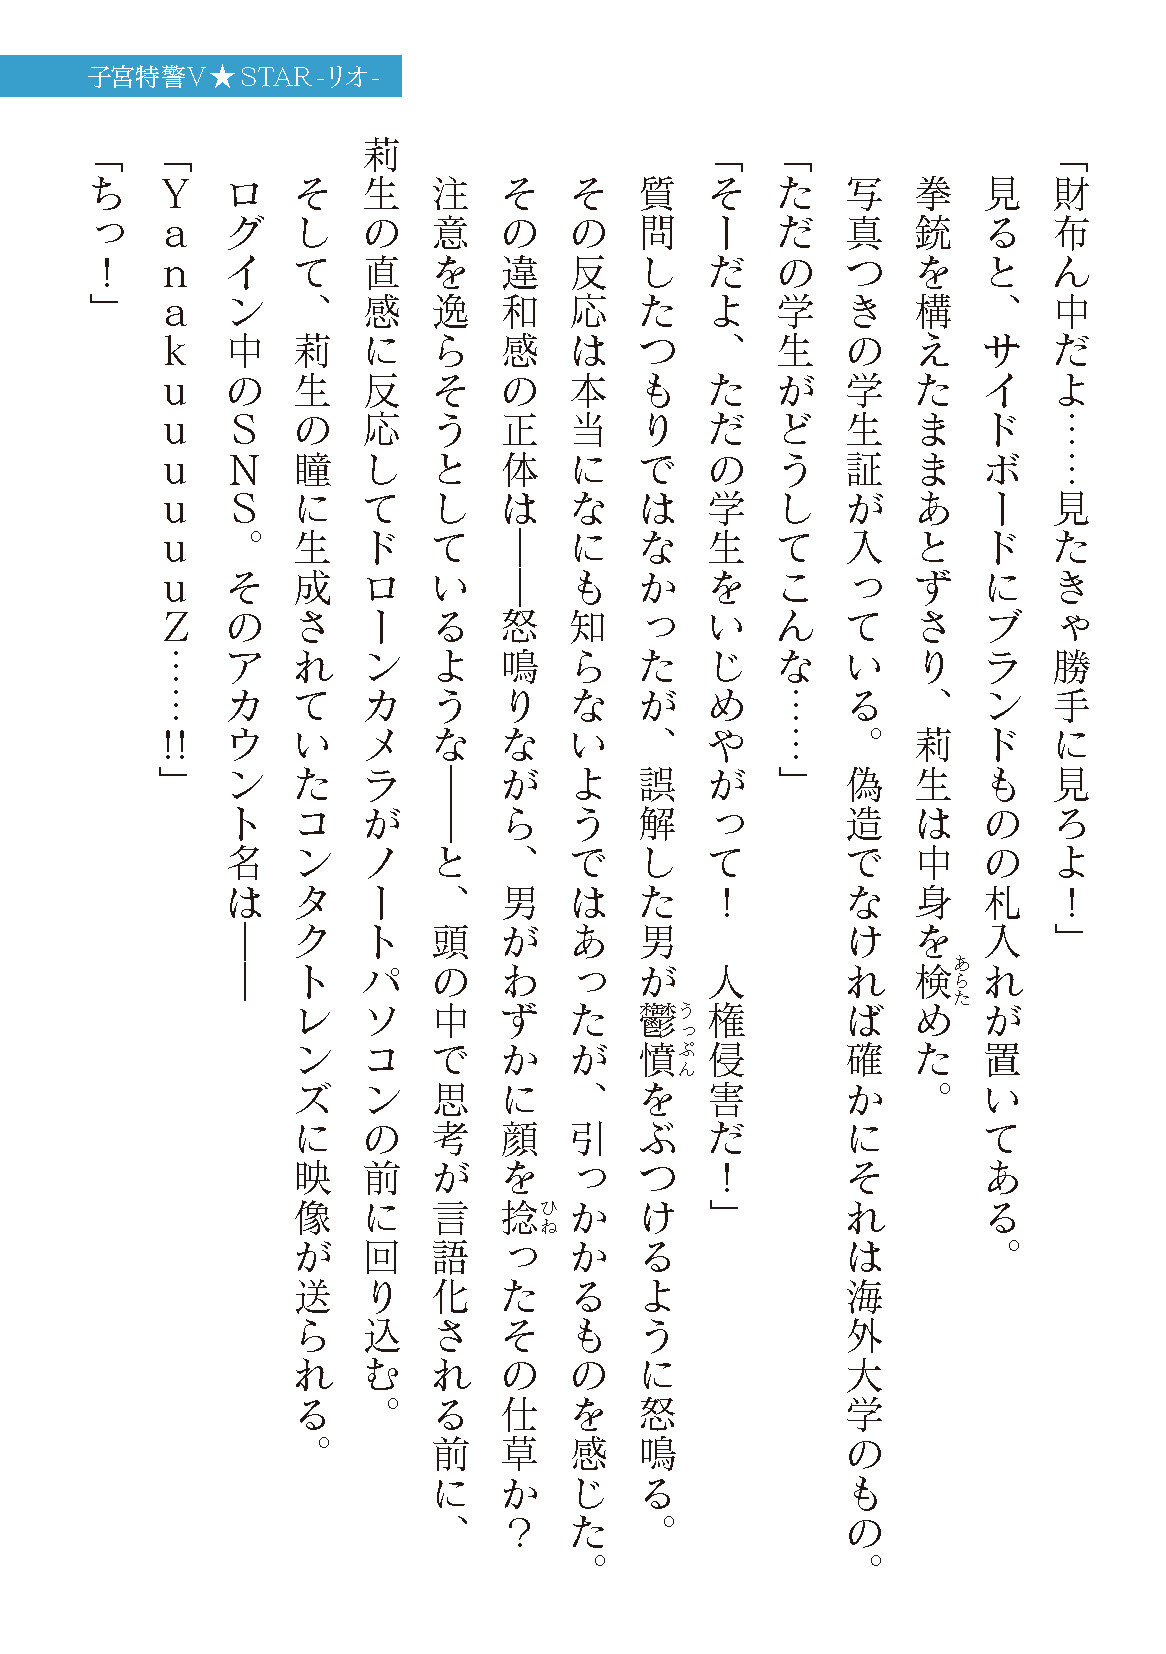 子宮特警V★STAR-リオ-
「財布ん中だよ……見たきゃ勝手に見ろよ！」
見ると、サイドボードにブランドものの札入れが置いてある。
拳銃を構えたままあとずさり、莉生は中身を検めた。
あらた
写真つきの学生証が入っている。偽造でなければ確かにそれは海外大学のもの。
「ただの学生がどうしてこんな……」
「そーだよ、ただの学生をいじめやがって！　人権侵害だ！」
質問したつもりではなかったが、誤解した男が鬱憤をぶつけるように怒鳴る。
うっぷん
その反応は本当になにも知らないようではあったが、引っかかるものを感じた。
その違和感の正体は――怒鳴りながら、男がわずかに顔を捻ったその仕草か？
ひね
注意を逸らそうとしているような――と、頭の中で思考が言語化される前に、
莉生の直感に反応してドローンカメラがノートパソコンの前に回り込む。
そして、莉生の瞳に生成されていたコンタクトレンズに映像が送られる。
ログイン中のＳＮＳ。そのアカウント名は――
「ＹａｎａｋｕｕｕｕｕＺ……!!」
「ちっ！」